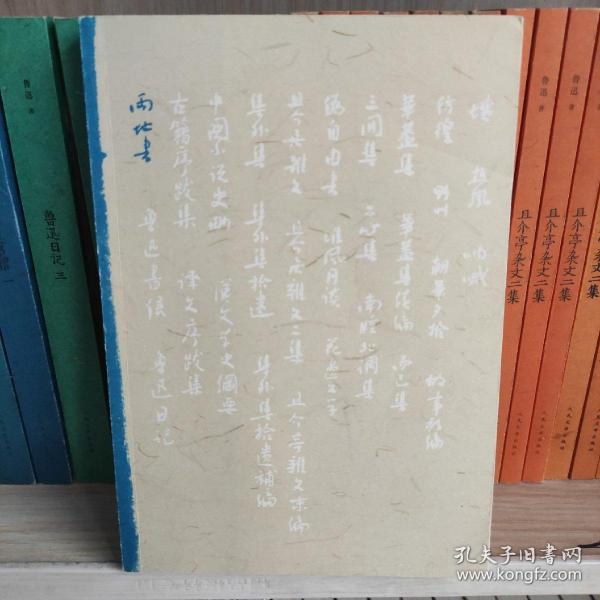 坟 热风 呐喊
彷徨 野草 朝花夕拾 故事新编
华盖集 华盖集续编 而已集
三闲集 二心集 南腔北调集
伪自由书 准风月谈 花边文学
且介亭杂文 且介亭杂文二集 且介亭杂文末编
集外集 集外集拾遗 集外集拾遗补编
中国小说史略 汉文学史纲要
古籍序跋集 译文序跋集
两地书 鲁迅书信 鲁迅日记
鲁迅 著
鲁迅日记 三
鲁迅 著
且介亭杂文二集
人民文学出版社
鲁迅 著
且介亭杂文二集
人民文学出版社
鲁迅 著
且介亭杂文二集
人民文学出版社
孔夫子旧书网
www.kongfz.com